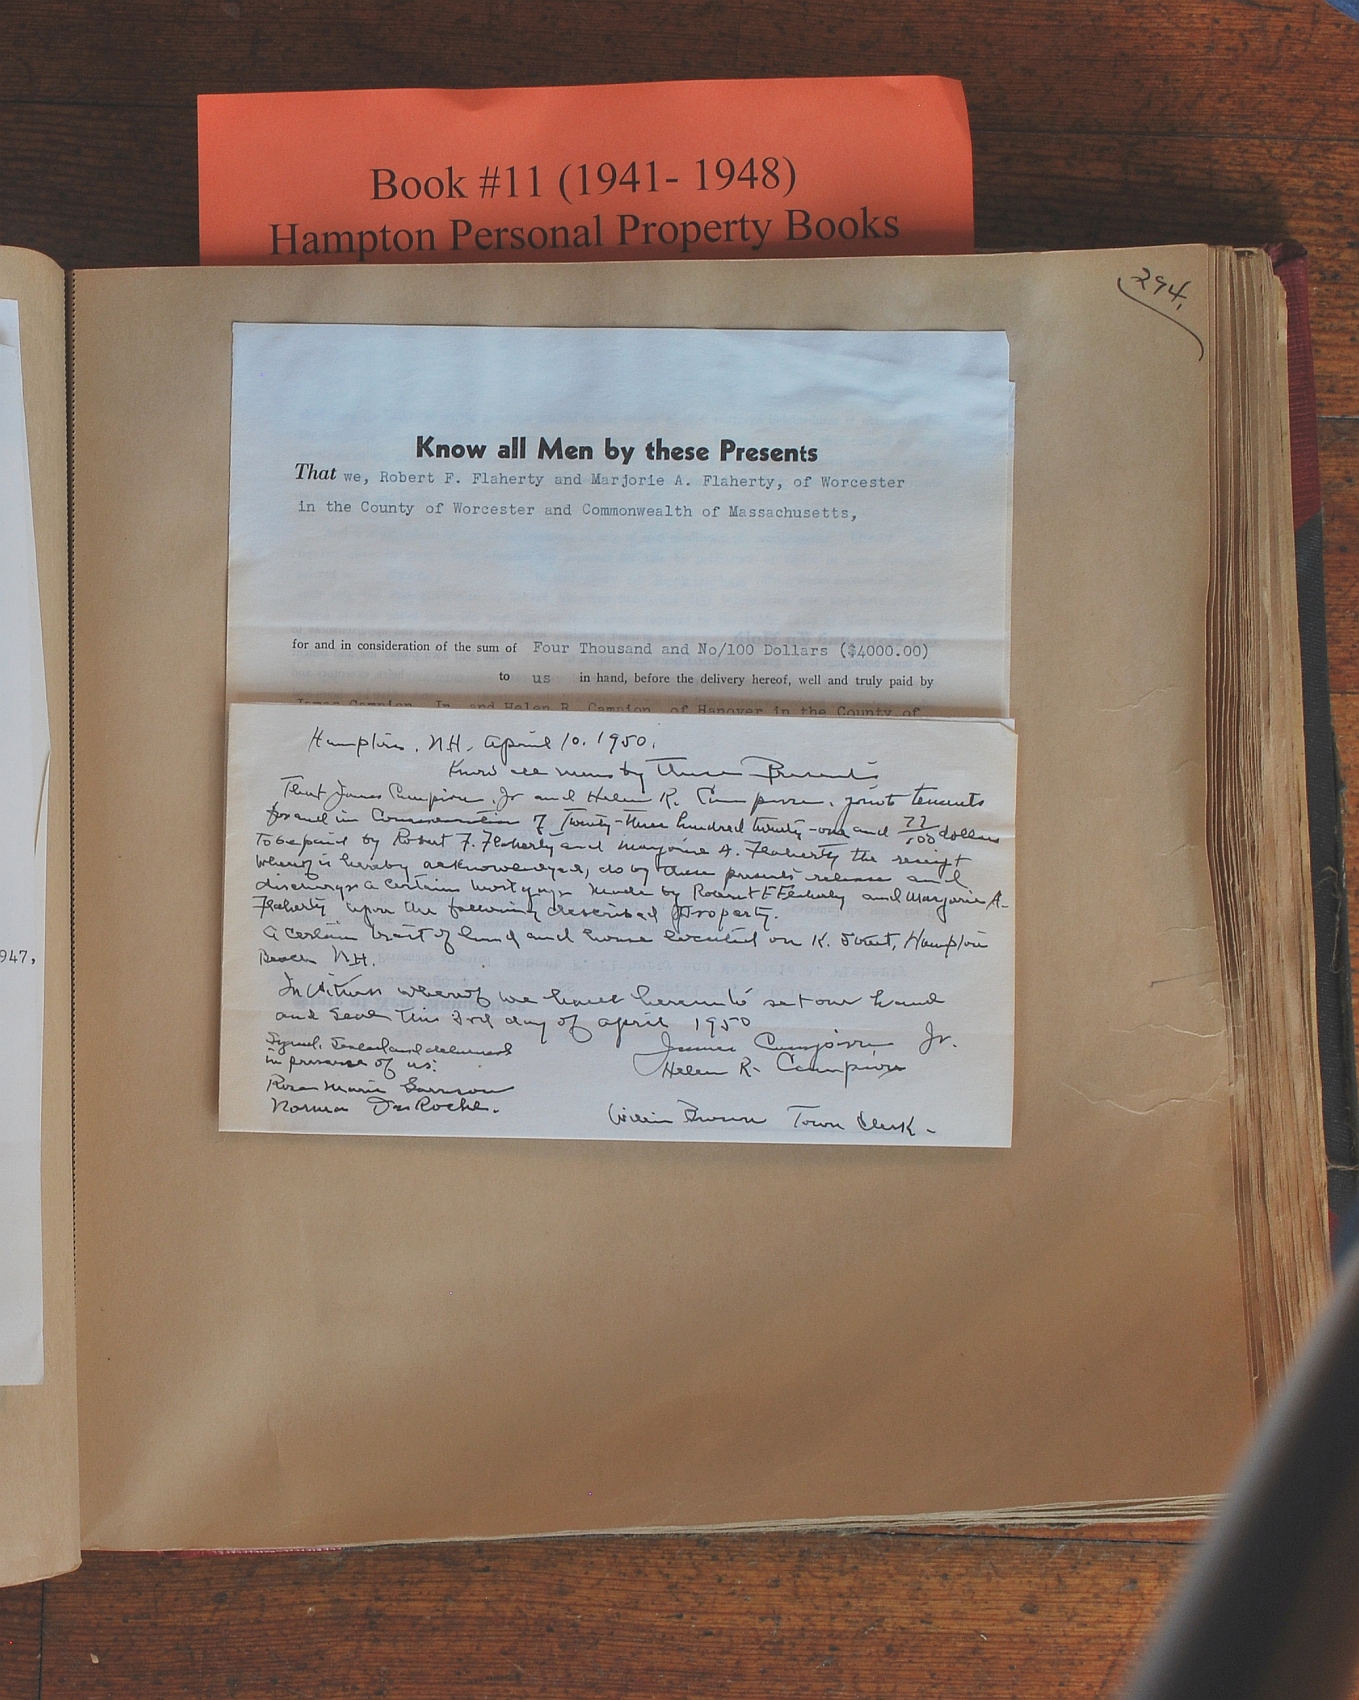 Book #11 (1941- 1948)
Hampton Personal Property Books
294.
Know all Men by these Presents
That we, Robert F. Flaherty and Marjorie A. Flaherty, of Worcester
in the County of Worcester and Commonwealth of Massachusetts,
for and in consideration of the sum of Four Thousand and No/100 Dollars ($4000.00)
to us in hand, before the delivery hereof, well and truly paid by
James Campion, Jr. and Helen R. Campion, of Hanover in the County of
947,
Hampton, N.H. April 10, 1950.
Know all men by These Presents
That James Campion, Jr and Helen R. Campion, joint tenants
for and in Consideration of Twenty-three hundred twenty-one and 77/100 dollars
to be paid by Robert F. Flaherty and Marjorie A. Flaherty the receipt
whereof is hereby acknowledged, do by these presents release and
discharge a certain mortgage made by Robert F Flaherty and Marjorie A.
Flaherty upon the following described Property.
A certain tract of land and house located on K. Street, Hampton
Beach N.H.
In Witness whereof we have hereunto set our hand
and seal this 3rd day of april 1950
Signed, Sealed and delivered
in presence of us:
James Campion Jr.
Helen R. Campion
Rose Marie
Norman DesRoche.
Brown Town Clerk.